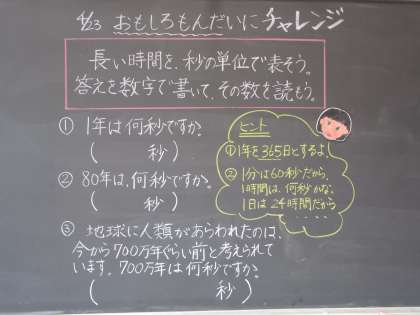 4/23 おもしろもんだいにチャレンジ
長い時間を、秒の単位で表そう。
答えを数字で書いて、その数を読もう。
① 1年は何秒ですか。
( 秒)
② 80年は、何秒ですか。
( 秒)
ヒント
①1年を365日とするよ。
② 1分は60秒だから、
1時間は、何秒かな。
1日は24時間だから
・・・・
③ 地球に人類があらわれたのは、
今から700万年ぐらい前と考えられて
います。700万年は何秒ですか。
( 秒)